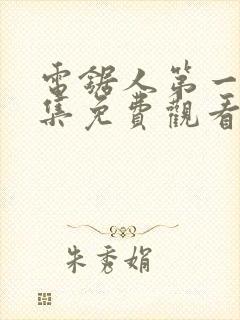 電鋸人第一
集免費觀看
朱秀娟